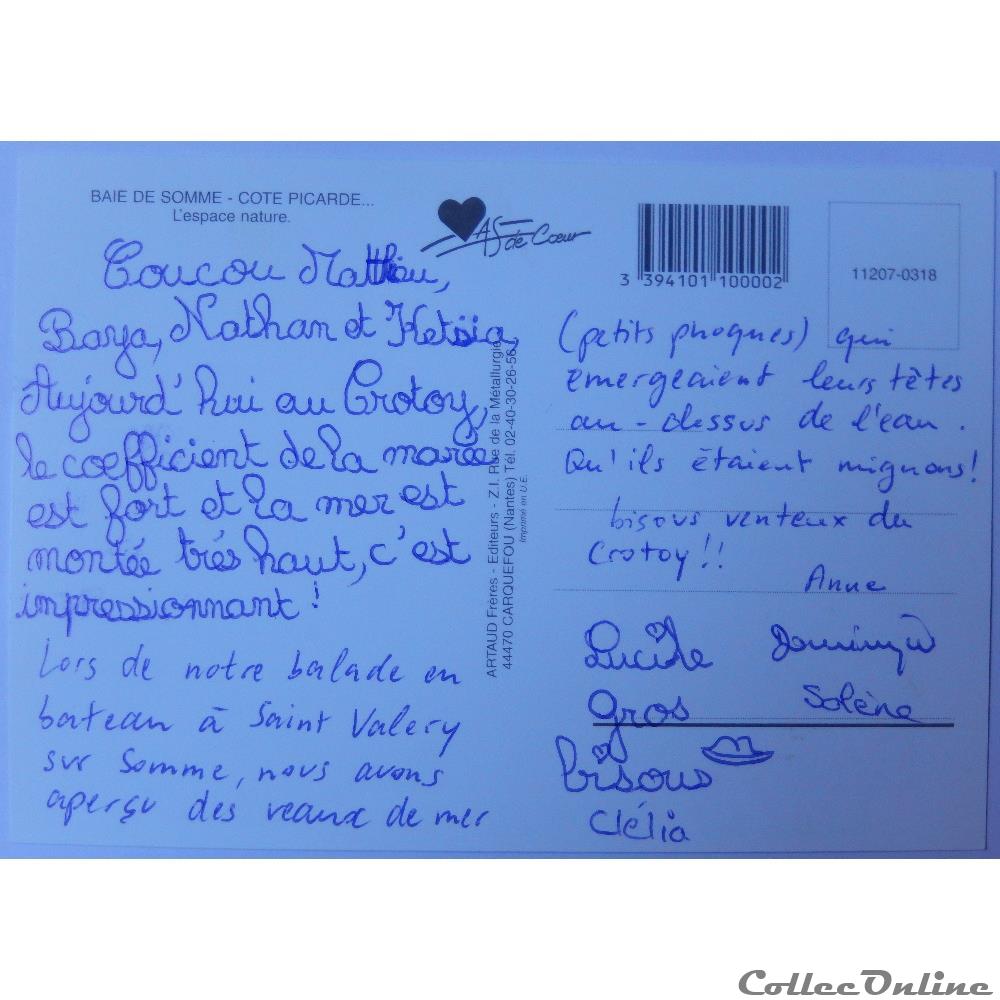 BAIE DE SOMME - COTE PICARDE...
L'espace nature.
AS de Cœur
3 394101 100002
11207-0318
Coucou Mathieu,
Baya, Nathan et Ketsia,
Aujourd'hui au Crotoy,
le coefficient de la marée
est fort et la mer est
montée trés haut, c'est
impressionnant !
Lors de notre balade en
bateau à Saint Valery
sur Somme, nous avons
aperçu des veaux de mer
ARTAUD Frères - Editeurs - Z.I. Rue de la Métallurgie
44470 CARQUEFOU (Nantes) Tél. 02-40-30-26-56
Imprimé en U.E.
(petits phoques) qui
émergeaient leurs têtes
au-dessus de l'eau.
Qu'ils étaient mignons!
bisous venteux du
Crotoy !!
Anne
Lucile
Solène
Gros
bisous
Clélia
CollecOnline